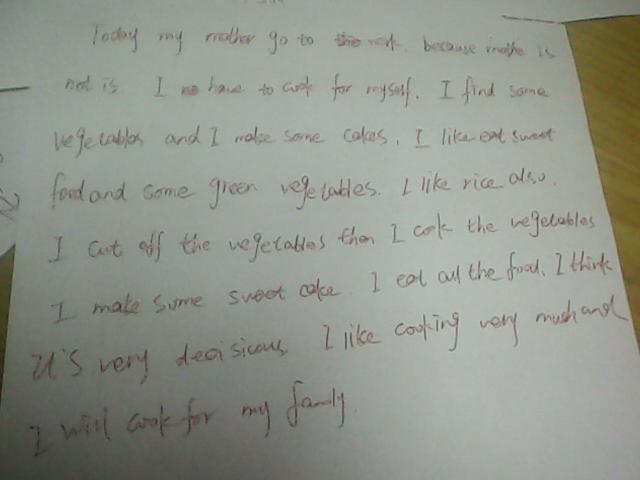 Today my mother go to the work. because mothe is
not is. I no have to cook for myself. I find some
vegetables and I make some cakes. I like eat sweet
food and some green vegetables. I like rice also.
I cut off the vegetables then I cook the vegetables
I make some sweet cake. I eat all the food. I think
it's very decisious. I like cooking very mush and
I will cook for my family.